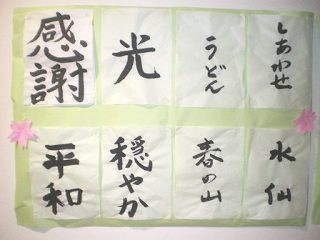 感謝
光
うどん
しあわせ
平和
穏やか
春の山
水仙